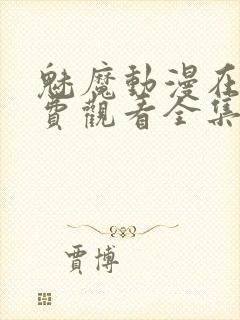 魅魔動漫在
費觀看全集
賈博